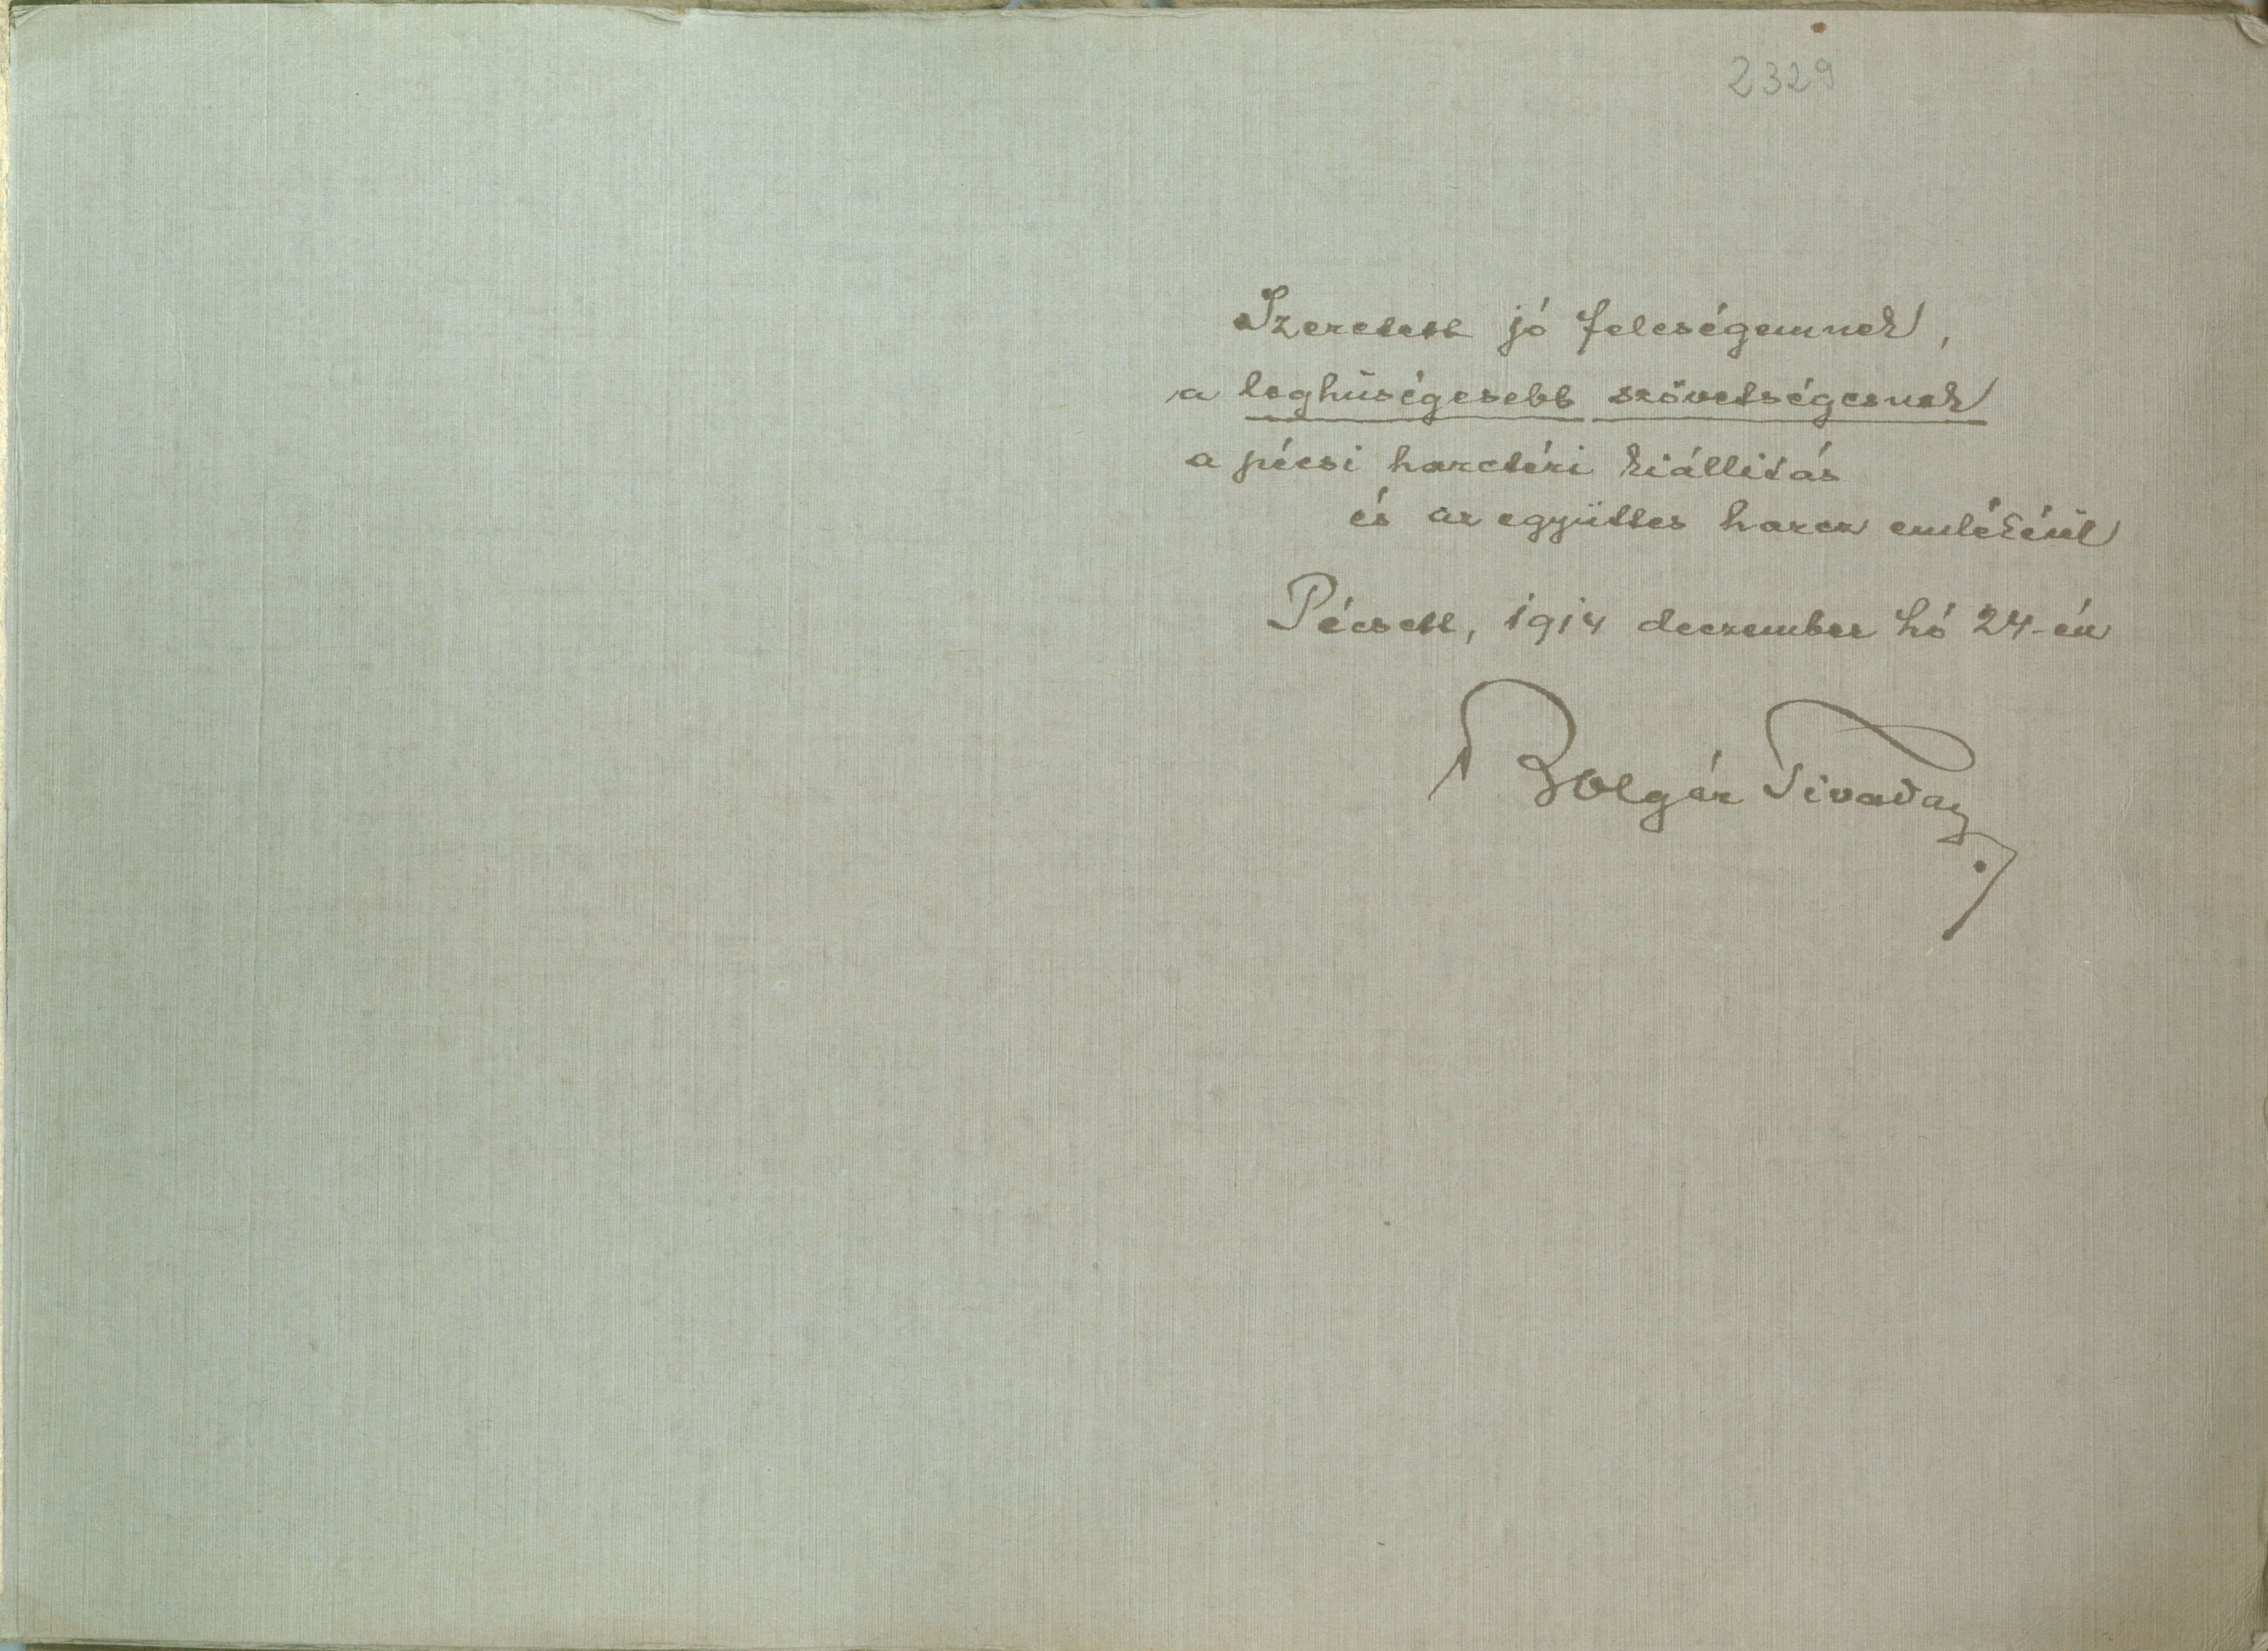 2329
Szeretett jó feleségemnek,
a leghűségesebb szövetségesnek
a pécsi harctéri kiállitás
és az együttes harcz emlékéül
Pécsett, 1914 deczember hó 24-én
Bolgár Tivadar